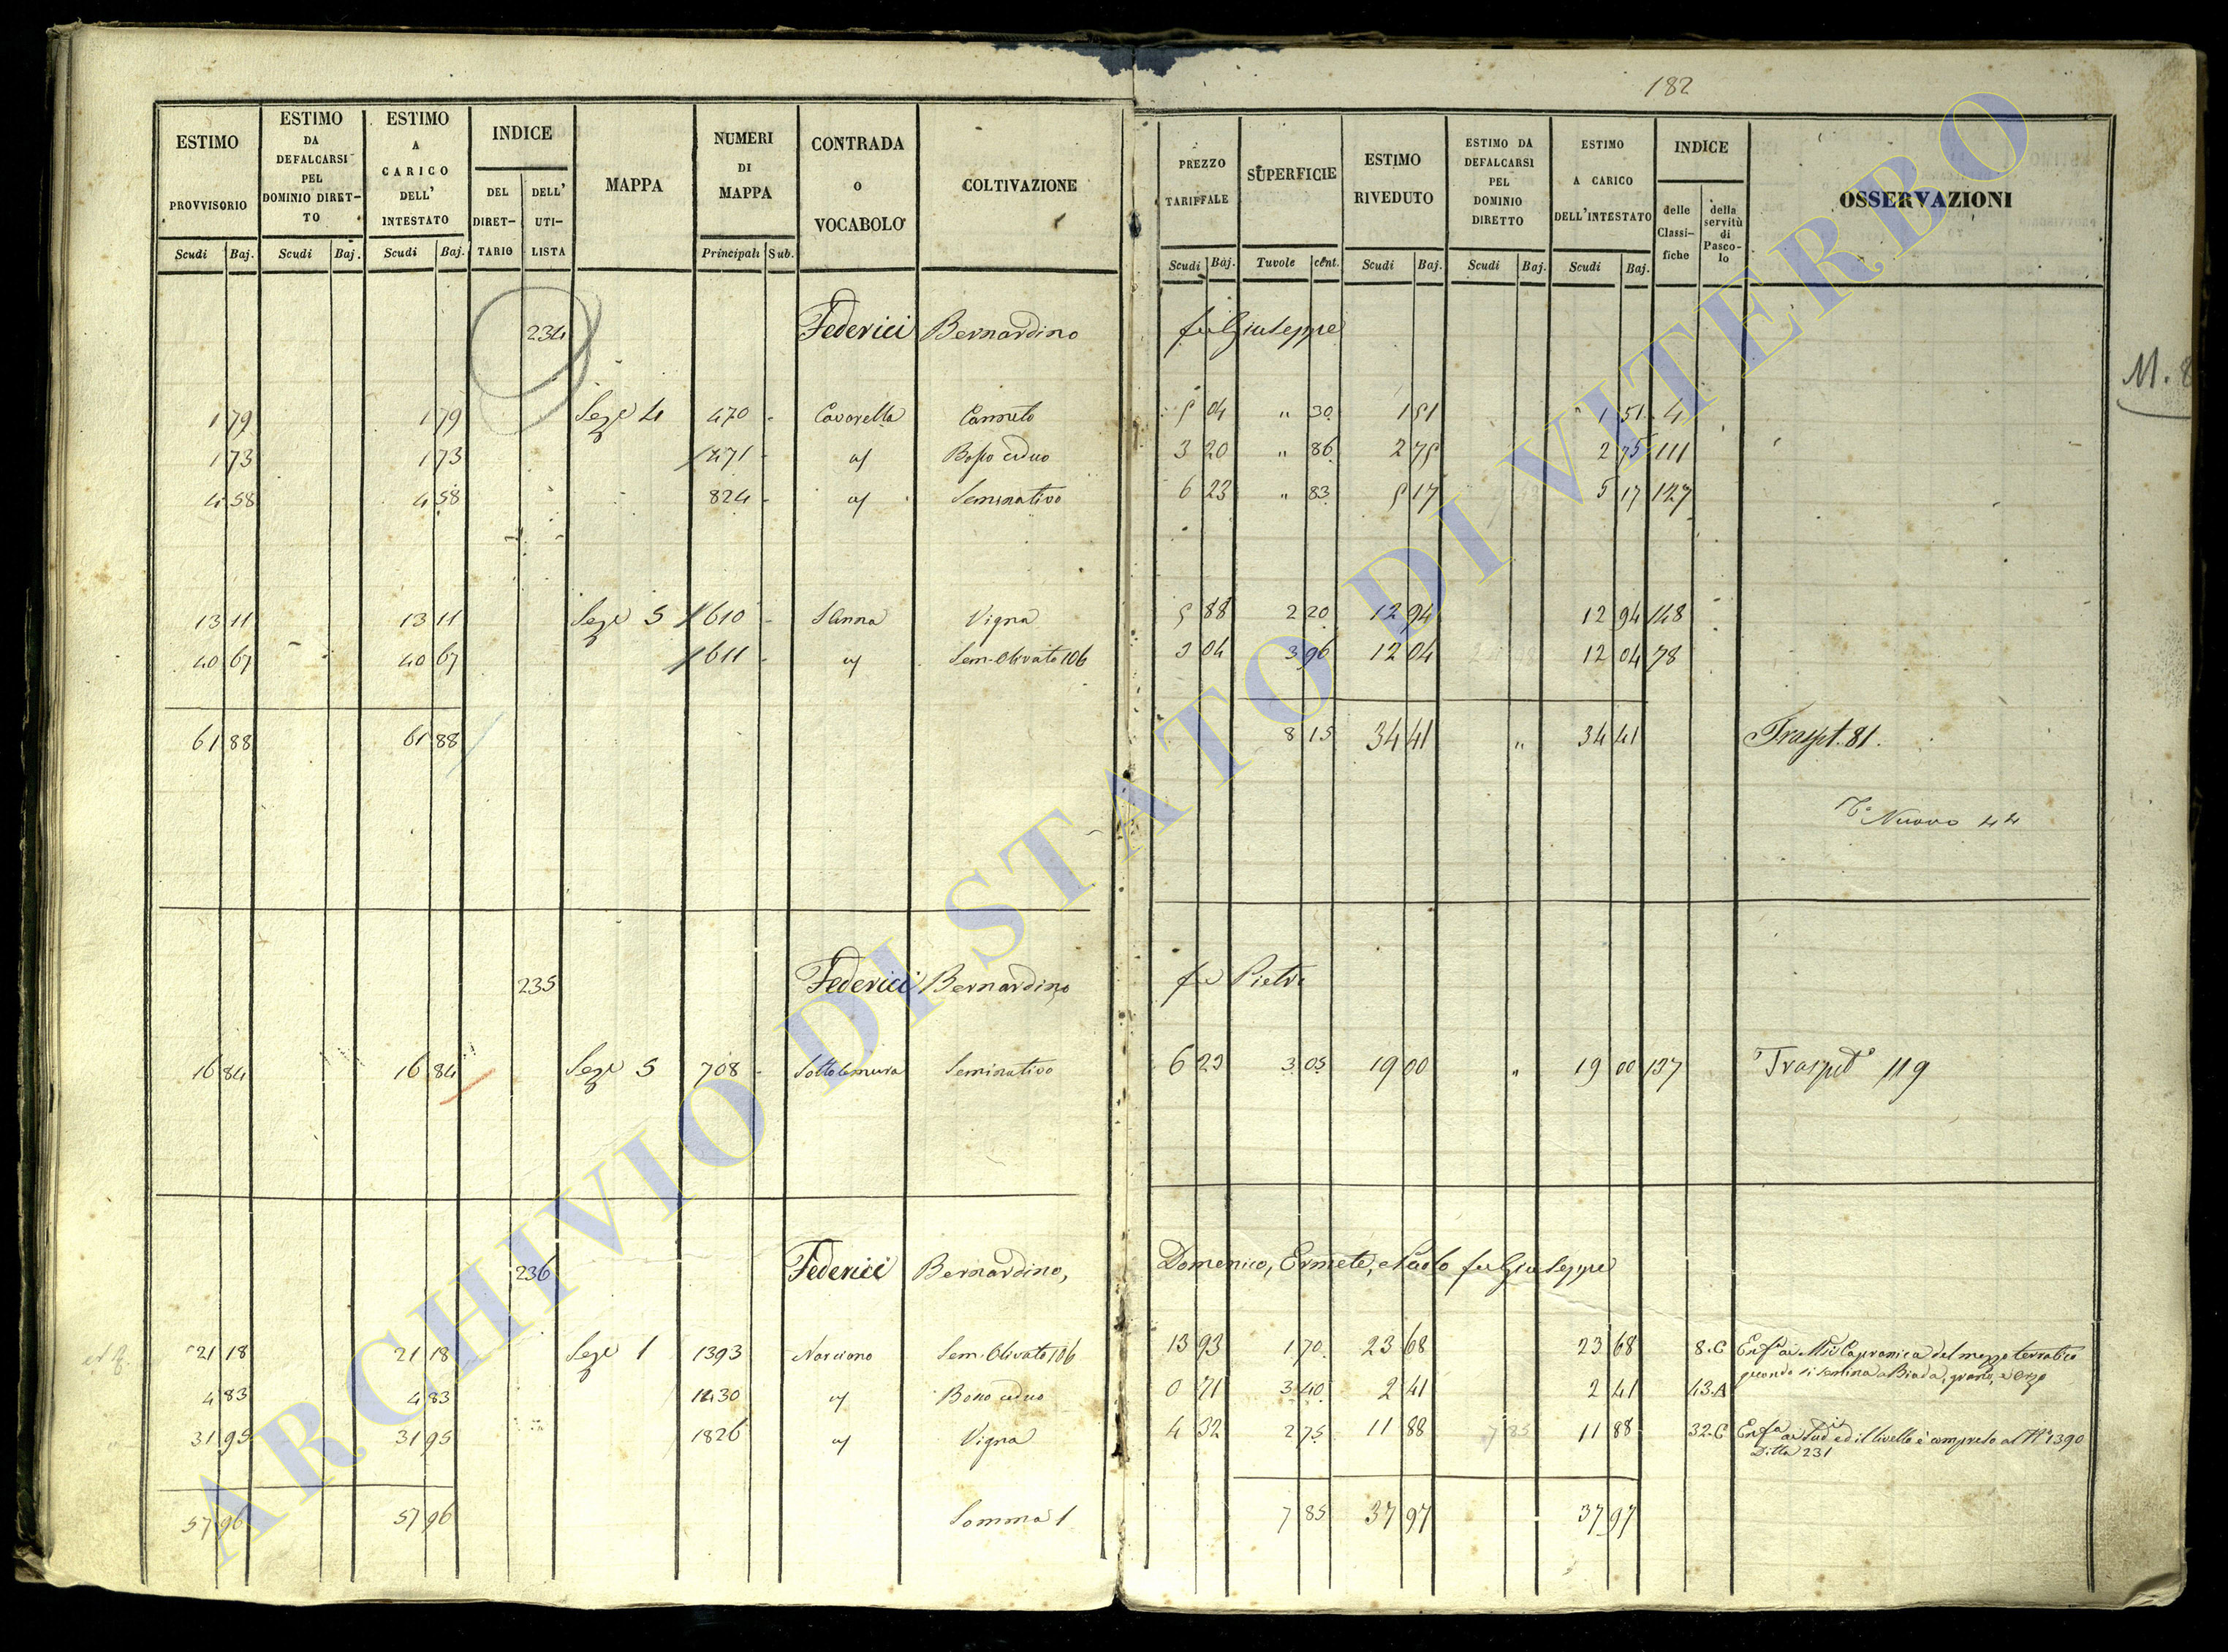 182
ESTIMO PROVVISORIO Scudi Baj.
ESTIMO DA DEFALCARSI PEL DOMINIO DIRETTO Scudi Baj.
ESTIMO A CARICO DELL' INTESTATO Scudi Baj.
INDICE DEL DIRETTARIO DELL' UTILISTA
MAPPA
NUMERI DI MAPPA Principali Sub.
CONTRADA O VOCABOLO
COLTIVAZIONE
PREZZO TARIFFALE Scudi Baj.
SUPERFICIE Tavole cent.
ESTIMO RIVEDUTO Scudi Baj.
ESTIMO DA DEFALCARSI PEL DOMINIO DIRETTO Scudi Baj.
ESTIMO A CARICO DELL'INTESTATO Scudi Baj.
INDICE delle Classifiche della servitù di Pascolo
OSSERVAZIONI
234 Federici Bernardino fu Giuseppe
M. 8
1 79 1 79 Seze 4 470 - Cavarella Canneto 5 04 " 30 1 51 1 51 4
1 73 1 73 471 - id Bosco ceduo 3 20 " 86 2 75 2 75 111
4 58 4 58 824 - id Seminativo 6 23 " 83 5 17 5 17 127
13 11 13 11 Seze 5 610 - S Anna Vigna 5 88 2 20 12 94 12 94 148
40 67 40 67 611 - id Sem. Olivato 106 3 04 3 96 12 04 12 04 78
61 88 61 88 8 15 34 41 " 34 41 Traspt. 81.
Nuovo 44
235 Federici Bernardino fu Pietro
16 84 16 84 Seze 5 708 - Sotto le mura Seminativo 6 23 3 05 19 00 " 19 00 137 Traspto 119
236 Federici Bernardino, Domenico, Ermete, e Paolo fu Giuseppe
21 18 21 18 Seze 1 1393 Narciano Sem. Olivato 106 13 93 1 70 23 68 23 68 8.C Enfa ai Mi Capranica del mezzo terratico
quando si semina a Biada, grano, e Orzo
4 83 4 83 1430 id Bosco ceduo 0 71 3 40 2 41 2 41 43.A
31 95 31 95 1826 id Vigna 4 32 2 75 11 88 11 88 32.C Enfa ai Sudit ed il livello è compreso al No 1390
Ditta 231
57 96 57 96 Somma 1 7 85 37 97 37 97
ARCHIVIO DI STATO DI VITERBO